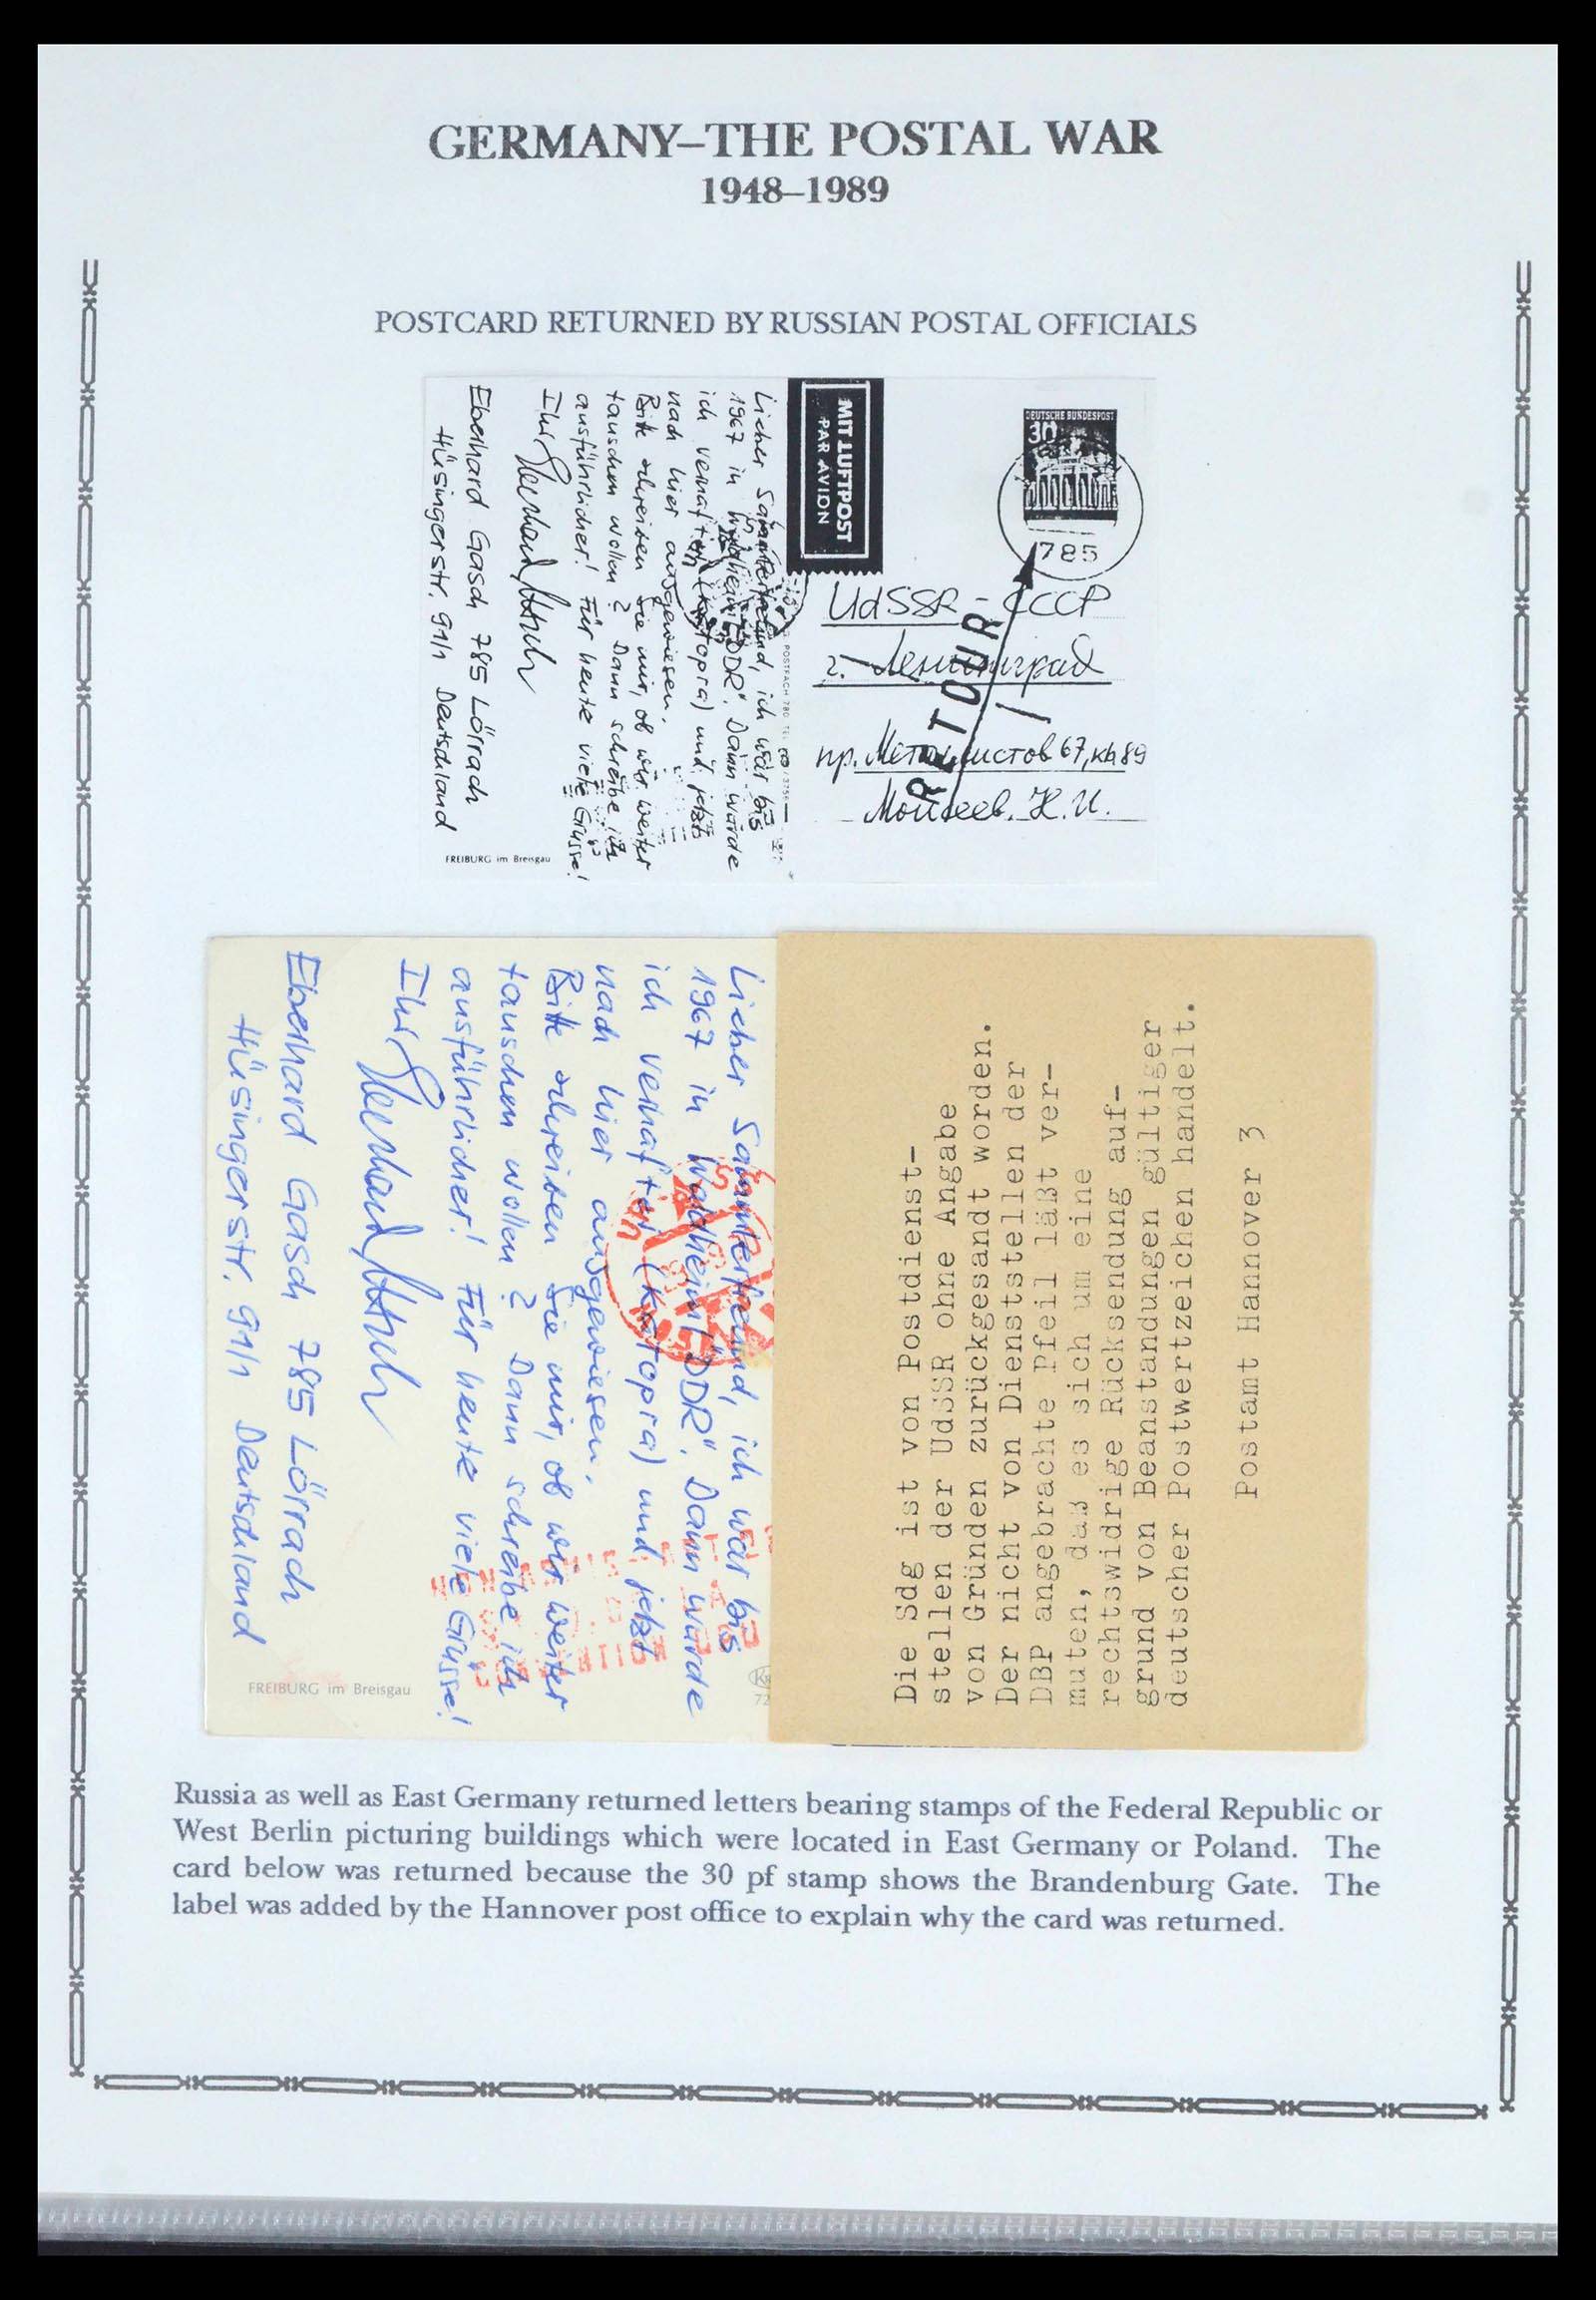 GERMANY–THE POSTAL WAR
1948–1989
POSTCARD RETURNED BY RUSSIAN POSTAL OFFICIALS
Lieber Sammlerfreund, ich war bis
1967 in Waldheim/"DDR". Dann wurde
ich verhaftet und jetzt
nach hier ausgewiesen.
Bitte schreiben Sie mir, ob wir weiter
tauschen wollen? Dann schreibe ich
ausführlicher! Für heute viele Grüsse!
Ihr
Eberhard Gasch 785 Lörrach
Hüsingerstr. 91/1 Deutschland
FREIBURG im Breisgau
MIT LUFTPOST
PAR AVION
DEUTSCHE BUNDESPOST
30
785
RETOUR
UdSSR - CCCP
г. Ленинград
пр. Металлистов 67, кв 89
Моисеев. Н. И.
Lieber Sammlerfreund, ich war bis
1967 in Waldheim/"DDR". Dann wurde
ich verhaftet und jetzt
nach hier ausgewiesen.
Bitte schreiben Sie mir, ob wir weiter
tauschen wollen? Dann schreibe ich
ausführlicher! Für heute viele Grüsse!
Ihr
Eberhard Gasch 785 Lörrach
Hüsingerstr. 91/1 Deutschland
FREIBURG im Breisgau
72
Die Sdg ist von Postdienst-
stellen der UdSSR ohne Angabe
von Gründen zurückgesandt worden.
Der nicht von Dienststellen der
DBP angebrachte Pfeil läßt ver-
muten, daß es sich um eine
rechtswidrige Rücksendung auf-
grund von Beanstandungen gültiger
deutscher Postwertzeichen handelt.
Postamt Hannover 3
Russia as well as East Germany returned letters bearing stamps of the Federal Republic or
West Berlin picturing buildings which were located in East Germany or Poland. The
card below was returned because the 30 pf stamp shows the Brandenburg Gate. The
label was added by the Hannover post office to explain why the card was returned.